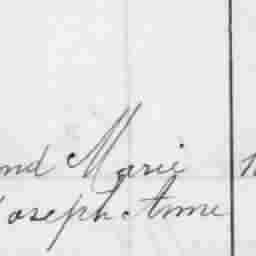 nd Marie
Joseph Anne